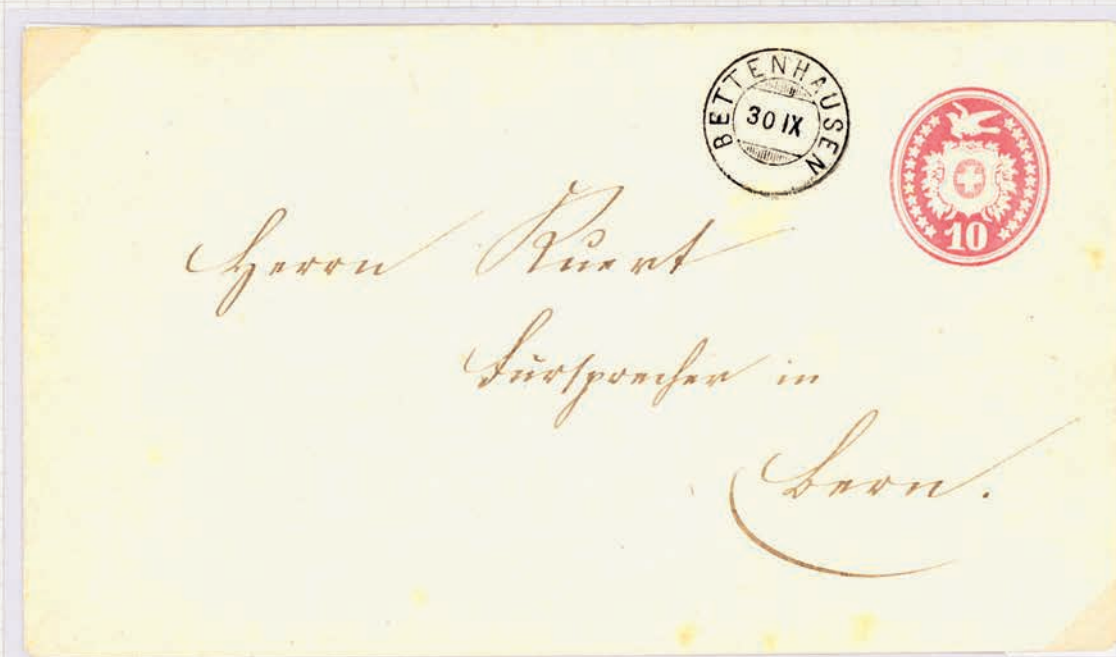 BETTENHAUSEN
30 IX
10
Herrn Kuert
Fürsprecher in
Bern.